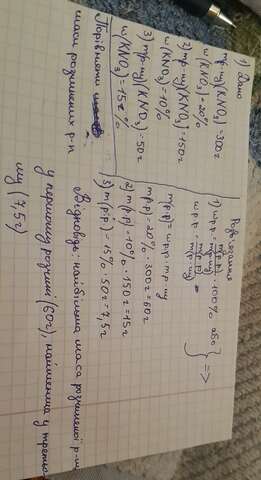 1) Дано
m р-ну (KNO₃) = 300г
ω (KNO₃) = 20%
2) m р-ну) (KNO₃) = 150г
ω (KNO₃) = 10%
3) m р-ну (KNO₃) = 50г
ω (KNO₃) = 15%
Порівняти
маси розчинених р-н
Розв'язання
1) ω р.р. = m(р.р) / m р-ну · 100% або
ω р.р. = m(р.р) / m(р-ну)
} =>
m р.р = ω р.р. · m р-ну
m(р.р) = 20% · 300г = 60г
2) m(р.р) = 10% · 150г = 15г
3) m(р.р) = 15% · 50г = 7,5г
Відповідь: найбільша маса розчиненої р-ни
у першому розчині (60г), найменша у третьо
му (7,5г)